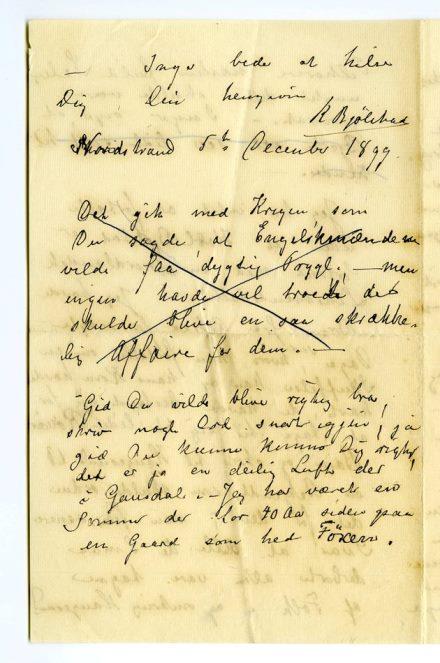 — Inga beder at hilse
Dig, Din hengivne
K Bjölstad
Nordstrand 5th December 1899.
Det gik med Krigen som
Du sagde at Engelskmændene
vilde faa dygtig Bryggl; — men
ingen havde vel troede det
skulde blive en saa skrække-
lig Affaire for dem. —
Gid Du vilde blive rigtig bra,
skriv nogle Ord snart igjen; ja
gid Du kunne komme Dig rigtig,
det er jo en deilig Luft der
i Gausdal. — Jeg har været en
Sommer der for 40 Aar siden paa
en Gaard som hed